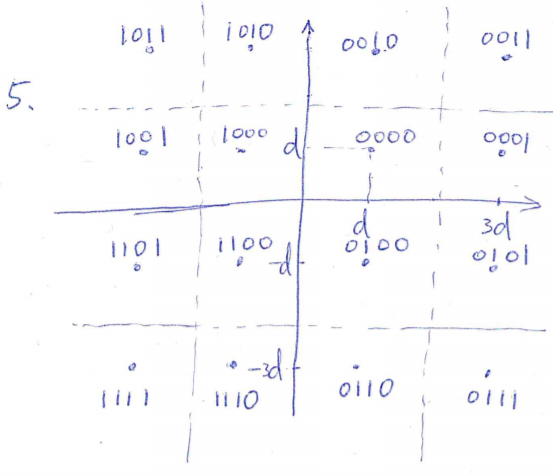 1011 1010 0010 0011
5.
1001 1000 d 0000 0001
d 3d
1101 1100 -d 0100 0101
-3d
1111 1110 0110 0111